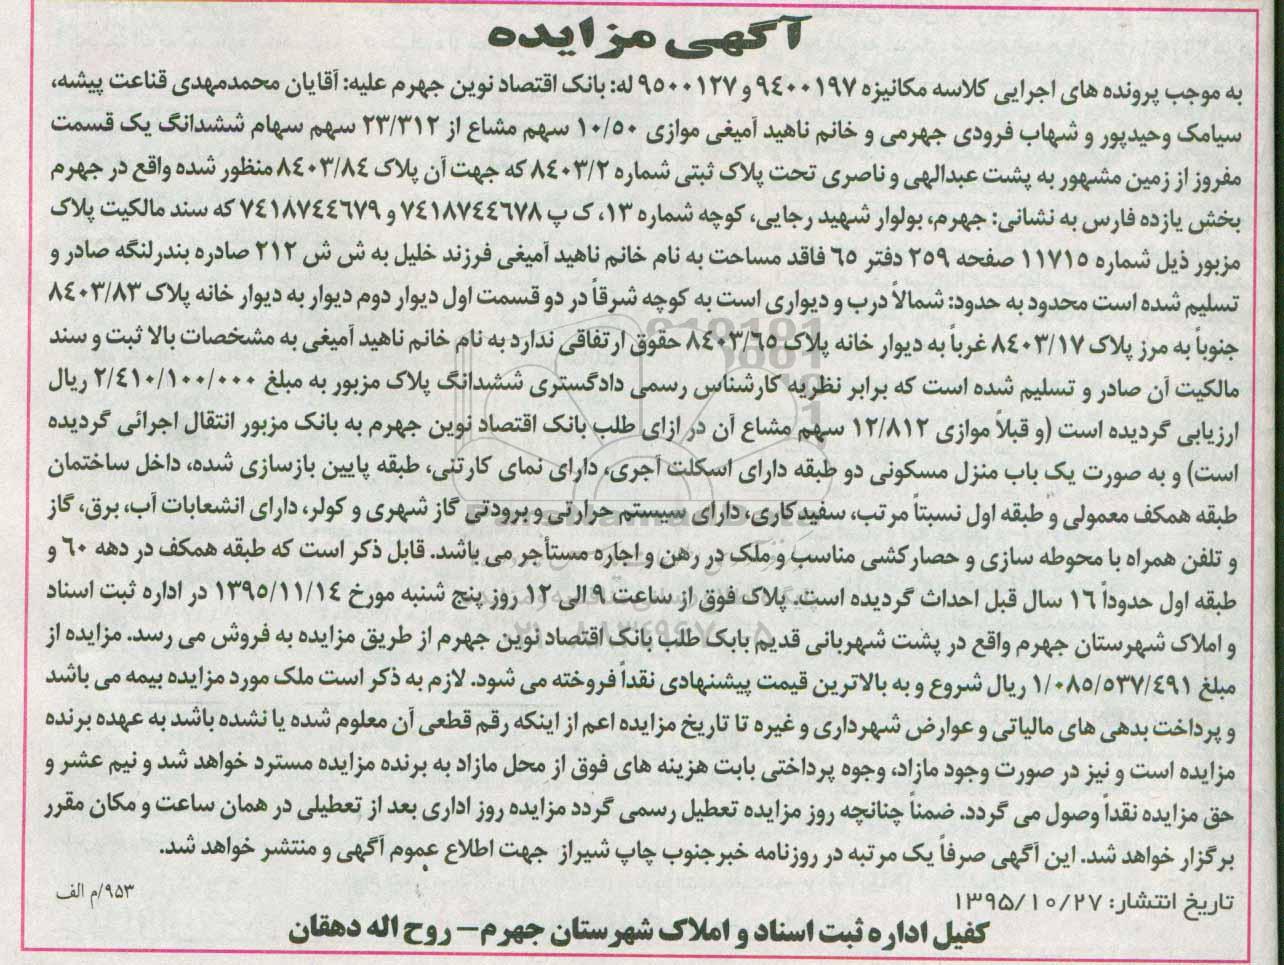 آگهی مزایده
به موجب پرونده های اجرایی کلاسه مکانیزه ۹۴۰۰۱۹۷ و ۹۵۰۰۱۲۷ له: بانک اقتصاد نوین جهرم علیه: آقایان محمدمهدی قناعت پیشه،
سیامک وحیدپور و شهاب فرودی جهرمی و خانم ناهید آمیغی موازی ۱۰/۵۰ سهم مشاع از ۲۳/۳۱۲ سهم سهام ششدانگ یک قسمت
مفروز از زمین مشهور به پشت عبدالهی و ناصری تحت پلاک ثبتی شماره ۸۴۰۳/۲ که جهت آن پلاک ۸۴۰۳/۸۴ منظور شده واقع در جهرم
بخش یازده فارس به نشانی: جهرم، بولوار شهید رجایی، کوچه شماره ۱۳، ک پ ۷۴۱۸۷۴۴۶۷۸ و ۷۴۱۸۷۴۴۶۷۹ که سند مالکیت پلاک
مزبور ذیل شماره ۱۱۷۱۵ صفحه ۲۵۹ دفتر ۶۵ فاقد مساحت به نام خانم ناهید آمیغی فرزند خلیل به ش ش ۲۱۲ صادره بندرلنگه صادر و
تسلیم شده است محدود به حدود: شمالاً درب و دیواری است به کوچه شرقاً در دو قسمت اول دیوار دوم دیوار به دیوار خانه پلاک ۸۴۰۳/۸۳
جنوباً به مرز پلاک ۸۴۰۳/۱۷ غرباً به دیوار خانه پلاک ۸۴۰۳/۶۵ حقوق ارتفاقی ندارد به نام خانم ناهید آمیغی به مشخصات بالا ثبت و سند
مالکیت آن صادر و تسلیم شده است که برابر نظریه کارشناس رسمی دادگستری ششدانگ پلاک مزبور به مبلغ ۲/۴۱۰/۱۰۰/۰۰۰ ریال
ارزیابی گردیده است (و قبلاً موازی ۱۲/۸۱۲ سهم مشاع آن در ازای طلب بانک اقتصاد نوین جهرم به بانک مزبور انتقال اجرائی گردیده
است) و به صورت یک باب منزل مسکونی دو طبقه دارای اسکلت آجری، دارای نمای کارتنی، طبقه پایین بازسازی شده، داخل ساختمان
طبقه همکف معمولی و طبقه اول نسبتاً مرتب، سفیدکاری، دارای سیستم حرارتی و برودتی گاز شهری و کولر، دارای انشعابات آب، برق، گاز
و تلفن همراه با محوطه سازی و حصارکشی مناسب و ملک در رهن و اجاره مستأجر می باشد. قابل ذکر است که طبقه همکف در دهه ۶۰ و
طبقه اول حدوداً ۱۶ سال قبل احداث گردیده است. پلاک فوق از ساعت ۹ الی ۱۲ روز پنج شنبه مورخ ۱۳۹۵/۱۱/۱۴ در اداره ثبت اسناد
و املاک شهرستان جهرم واقع در پشت شهربانی قدیم بابک طلب بانک اقتصاد نوین جهرم از طریق مزایده به فروش می رسد. مزایده از
مبلغ ۱/۰۸۵/۵۳۷/۴۹۱ ریال شروع و به بالاترین قیمت پیشنهادی نقداً فروخته می شود. لازم به ذکر است ملک مورد مزایده بیمه می باشد
و پرداخت بدهی های مالیاتی و عوارض شهرداری و غیره تا تاریخ مزایده اعم از اینکه رقم قطعی آن معلوم شده یا نشده باشد به عهده برنده
مزایده است و نیز در صورت وجود مازاد، وجوه پرداختی بابت هزینه های فوق از محل مازاد به برنده مزایده مسترد خواهد شد و نیم عشر و
حق مزایده نقداً وصول می گردد. ضمناً چنانچه روز مزایده تعطیل رسمی گردد مزایده روز اداری بعد از تعطیلی در همان ساعت و مکان مقرر
برگزار خواهد شد. این آگهی صرفاً یک مرتبه در روزنامه خبرجنوب چاپ شیراز جهت اطلاع عموم آگهی و منتشر خواهد شد.
تاریخ انتشار: ۱۳۹۵/۱۰/۲۷
۹۵۳/م الف
کفیل اداره ثبت اسناد و املاک شهرستان جهرم – روح اله دهقان